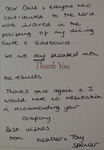 Dear Carl & everyone who
contributed to the hard
work involved in the
producing of my dining
Suite & Sideboard.
We are very pleased with
Thank You
the results
Thanks once again & I
would have no hesitation
in recommending your
company.
Best wishes
from Heather & Tony
Spencer